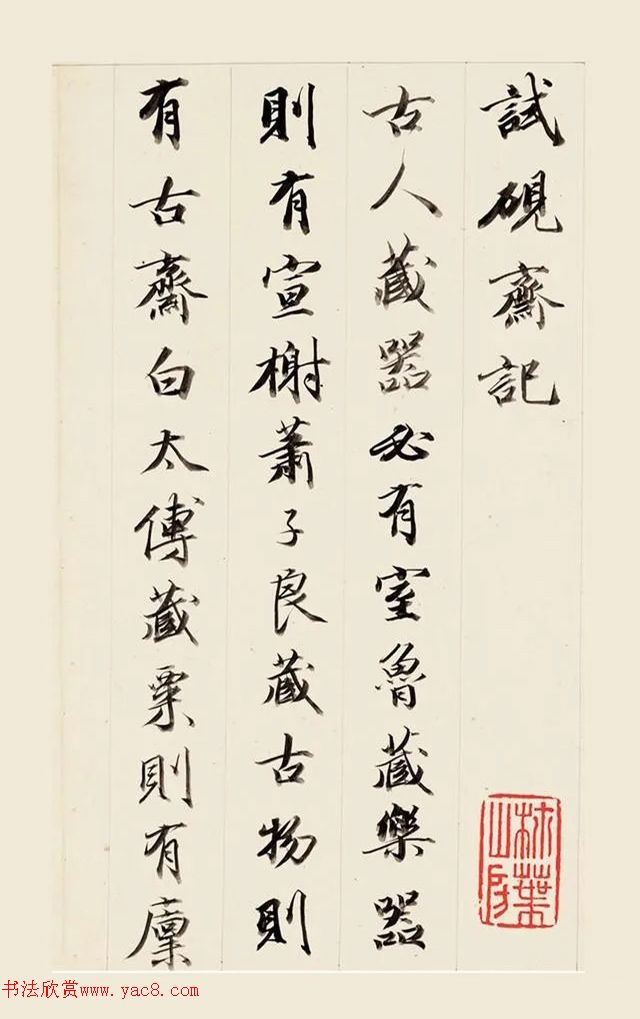 試硯齋記
古人藏器必有室魯藏樂器
則有宣榭蕭子良藏古物則
有古齋白太傅藏粟則有廩
书法欣赏www.yac8.com